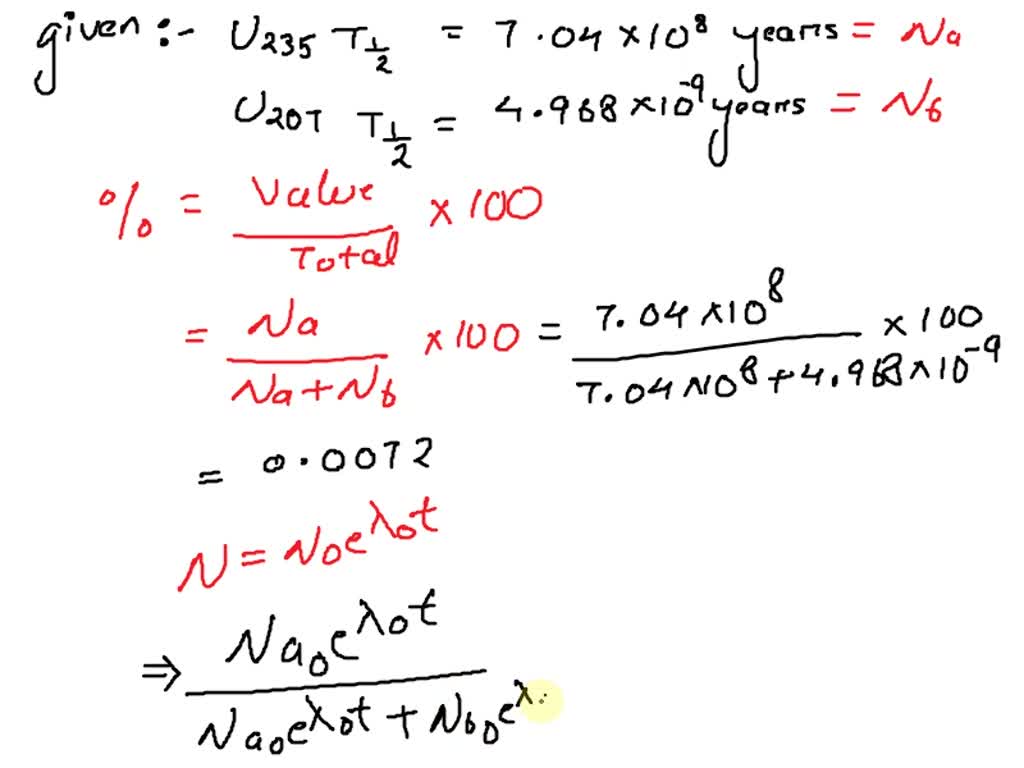 given :- U235 T1/2 = 7.04 ×10^8 years = Na
U207 T1/2 = 4.968 ×10^-9 years = N6
% = Value/Total × 100
= Na/Na+N6 × 100 = 7.04 ×10^8/7.04 ×10^8 + 4.968 ×10^-9 × 100
= 0.0072
N = N0e^λ0t
⇒ Na0e^λ0t/Na0e^λ0t + N60e^λ.